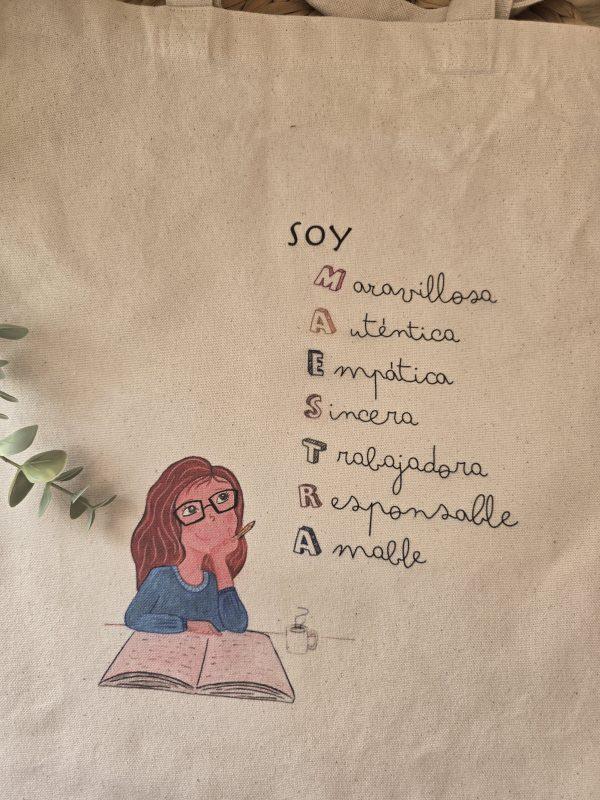 SOY
Maravillosa
Auténtica
Empática
Sincera
Trabajadora
Responsable
Amable